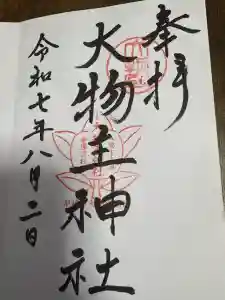 奉拝
大物主神社
令和七年八月二日